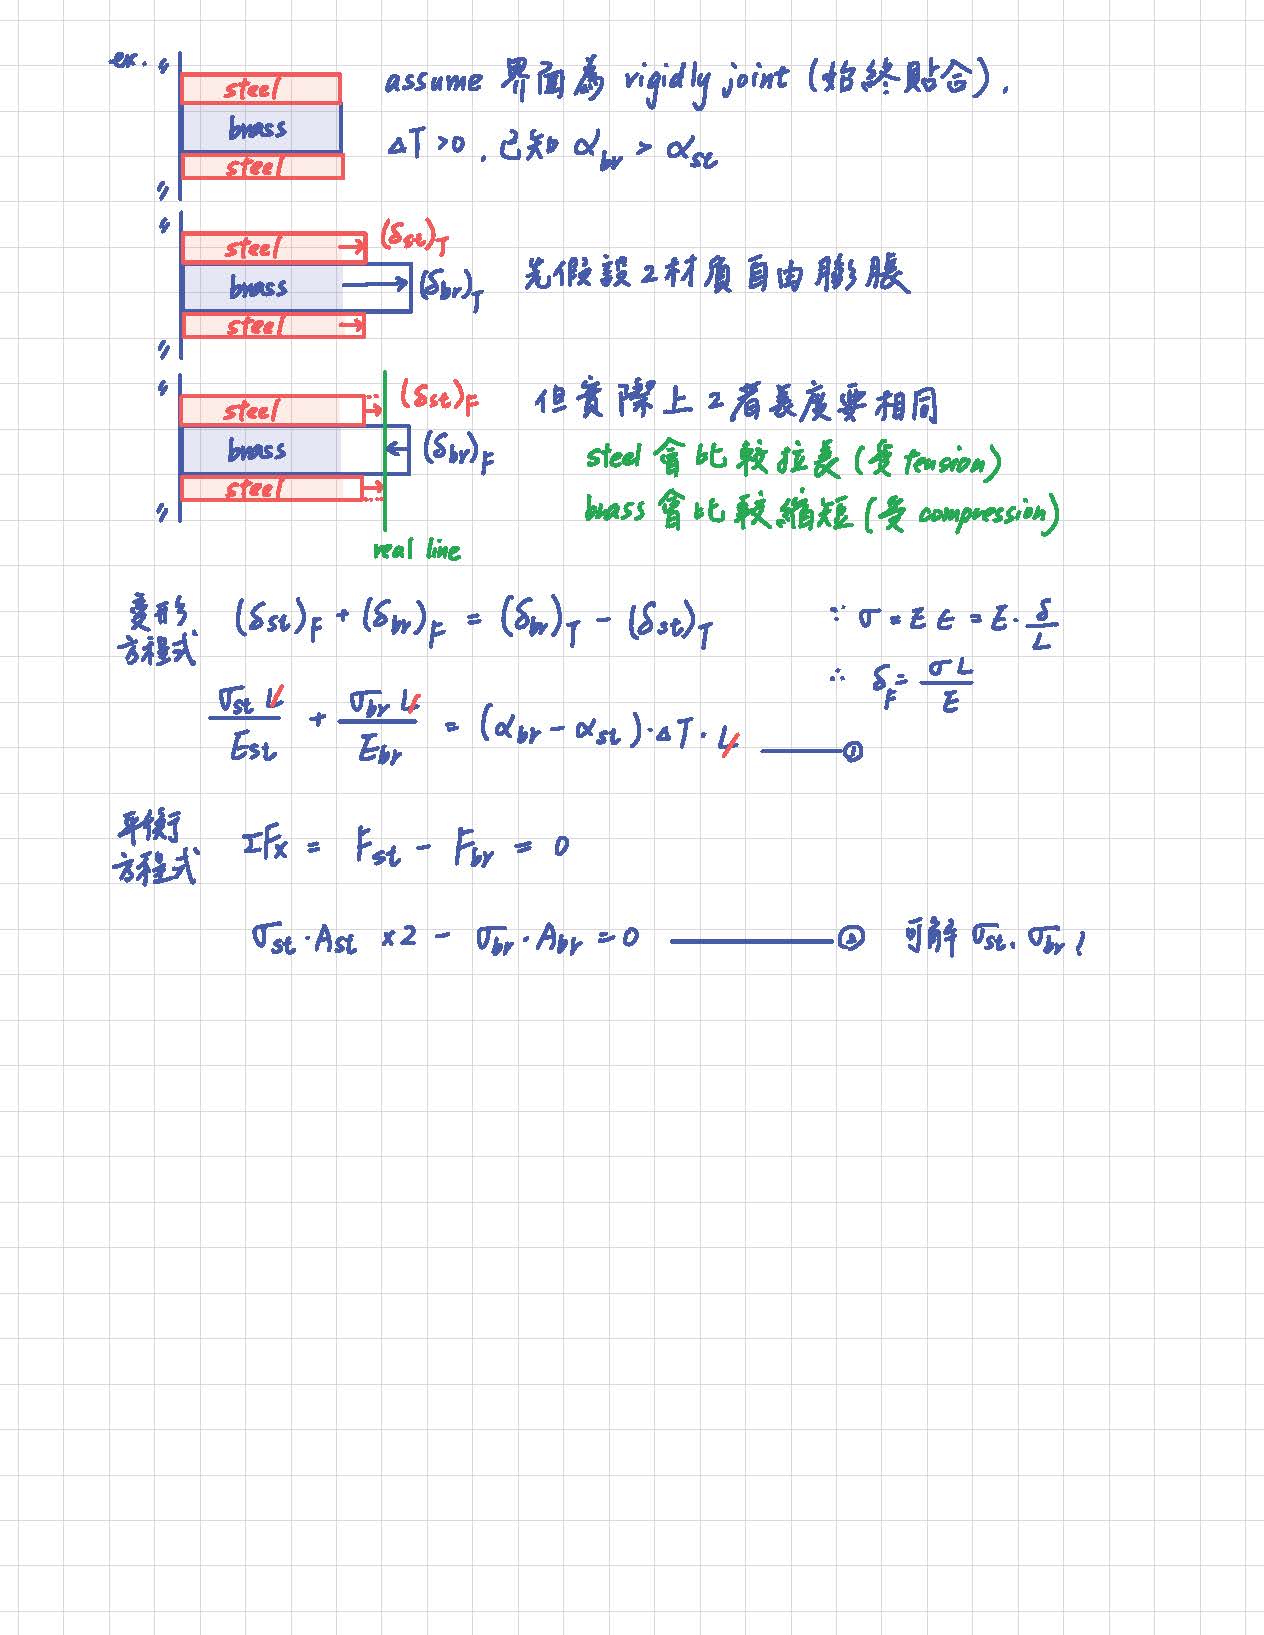 ex.
steel
brass
steel
assume 界面為 rigidly joint (始終貼合).
ΔT>0, 已知 α_br > α_st
steel
brass
steel
(δst)_T
(δbr)_T
先假設2材質自由膨脹
steel
brass
steel
(δst)_F
(δbr)_F
real line
但實際上2者長度要相同
steel 會比較拉長 (受 tension)
brass 會比較縮短 (受 compression)
變形方程式
(δst)_F + (δbr)_F = (δbr)_T - (δst)_T
∵ σ = E ε = E · δ/L
∴ δ_F = σL/E
σst L/Est + σbr L/Ebr = (αbr - αst) · ΔT · L ——— ①
平衡方程式
ΣFx = Fst - Fbr = 0
σst · Ast ×2 - σbr · Abr = 0 ——— ② 可解 σst, σbr !